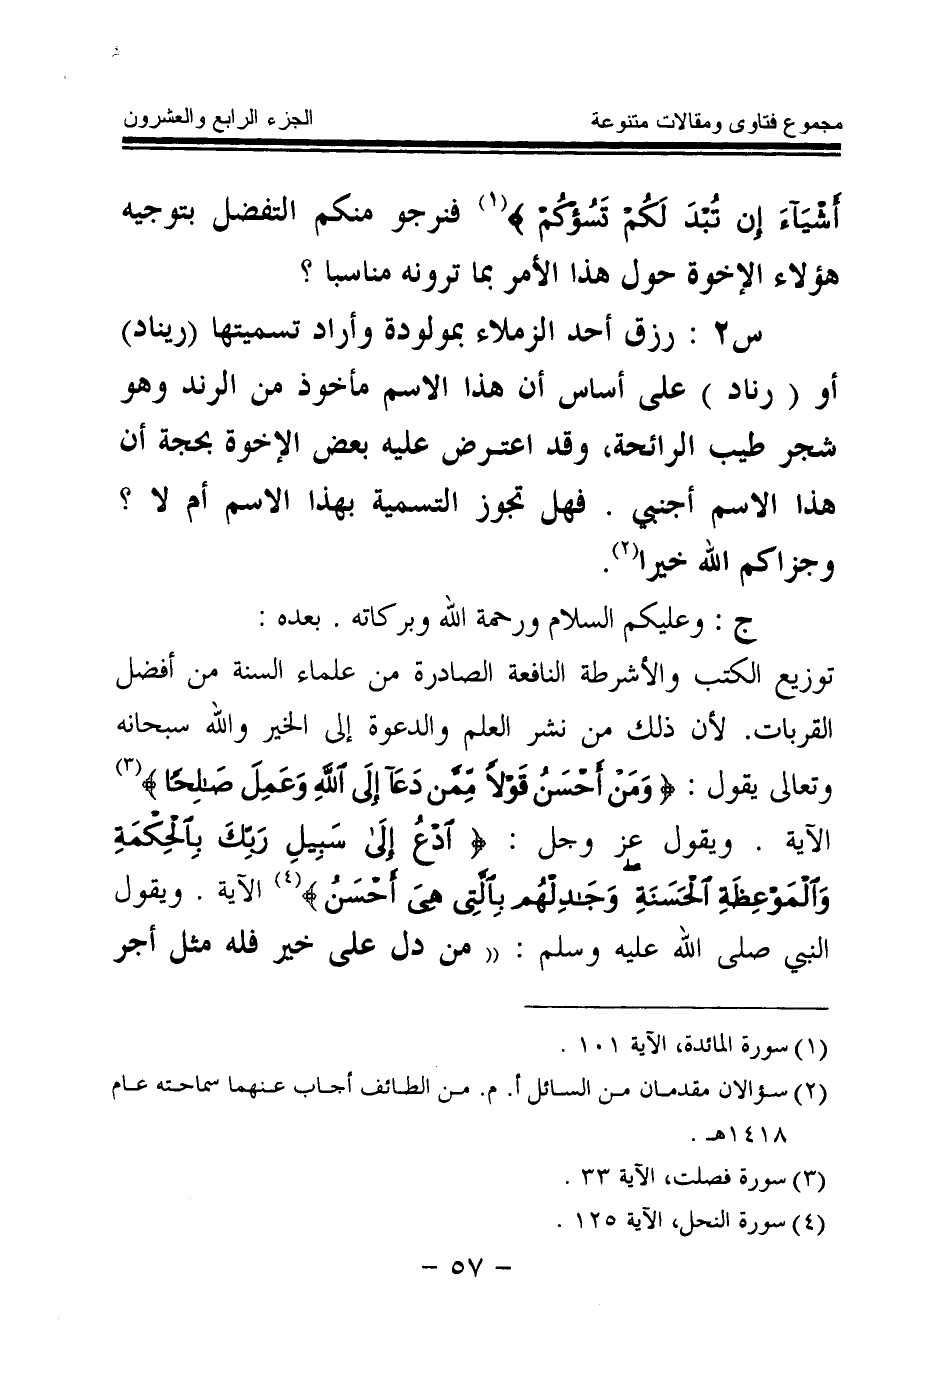 مجموع فتاوى ومقالات متنوعة الجزء الرابع والعشرون
أَشْيَآءَ إِن تُبْدَ لَكُمْ تَسُؤْكُمْ ﴾(١) فنرجو منكم التفضل بتوجيه
هؤلاء الإخوة حول هذا الأمر بما ترونه مناسبا ؟
س٢ : رزق أحد الزملاء بمولودة وأراد تسميتها (ريناد)
أو ( رناد ) على أساس أن هذا الاسم مأخوذ من الرند وهو
شجر طيب الرائحة، وقد اعترض عليه بعض الإخوة بحجة أن
هذا الاسم أجنبي . فهل تجوز التسمية بهذا الاسم أم لا ؟
وجزاكم الله خيرا(٢).
ج : وعليكم السلام ورحمة الله وبركاته . بعده :
توزيع الكتب والأشرطة النافعة الصادرة من علماء السنة من أفضل
القربات. لأن ذلك من نشر العلم والدعوة إلى الخير والله سبحانه
وتعالى يقول : ﴿ وَمَنْ أَحْسَنُ قَوْلًا مِّمَّن دَعَآ إِلَى ٱللَّهِ وَعَمِلَ صَـٰلِحًا ﴾(٣)
الآية . ويقول عز وجل : ﴿ ٱدْعُ إِلَىٰ سَبِيلِ رَبِّكَ بِٱلْحِكْمَةِ
وَٱلْمَوْعِظَةِ ٱلْحَسَنَةِ ۖ وَجَـٰدِلْهُم بِٱلَّتِى هِىَ أَحْسَنُ ﴾(٤) الآية . ويقول
النبي صلى الله عليه وسلم : (( من دل على خير فله مثل أجر
(١) سورة المائدة، الآية ١٠١ .
(٢) سؤالان مقدمان من السائل أ. م. من الطائف أجاب عنهما سماحته عام
١٤١٨هـ .
(٣) سورة فصلت، الآية ٣٣ .
(٤) سورة النحل، الآية ١٢٥ .
– ٥٧ –